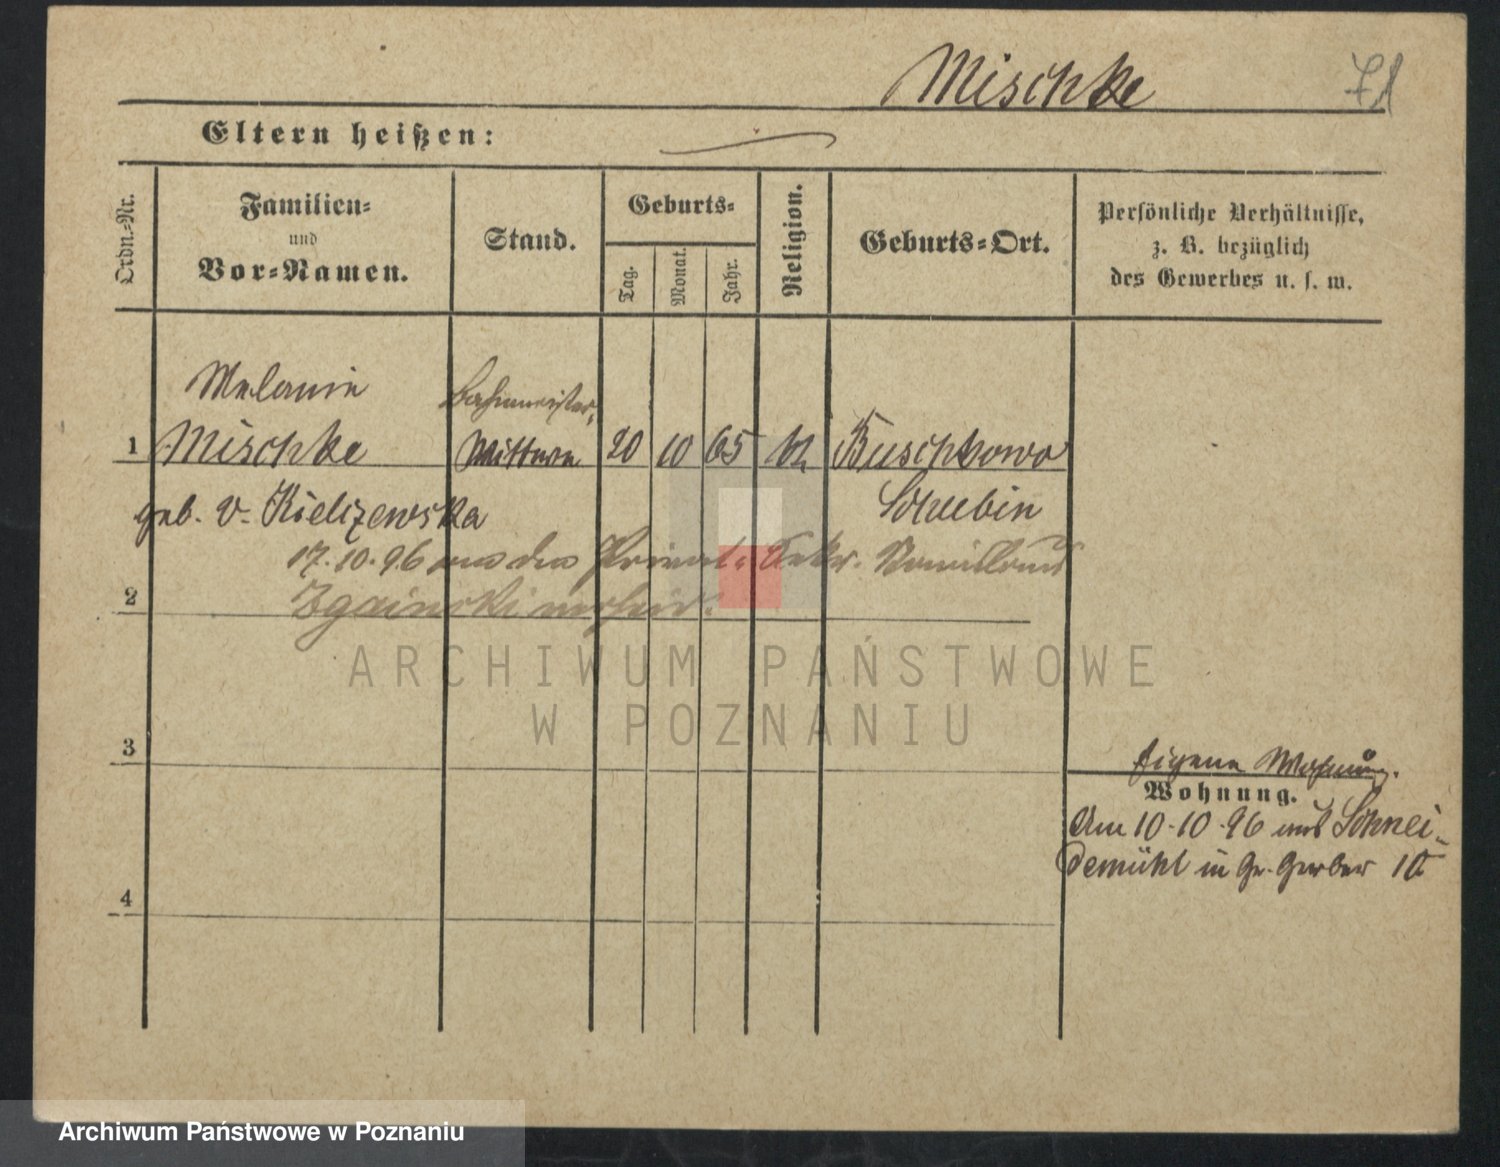 Mischke 71
Eltern heißen:
Ordn.=Nr.
Familien=
und
Vor=Namen.
Stand.
Geburts=
Tag.
Monat.
Jahr.
Religion.
Geburts=Ort.
Persönliche Verhältnisse,
z. B. bezüglich
des Gewerbes u. s. w.
Melanie
Bahnmeister,
1 Mischke Wittwe 20 10 65 k. Buschkowo
geb. v. Kielczewska Schubin
17.10.96 an den Privat= Sekr.
2 Zgainski verheir.
3
Eigene Wohnung.
Wohnung.
Am 10.10.96 aus Schnei=
demühl in Gr. Gerber
4
ARCHIWUM PAŃSTWOWE
W POZNANIU
Archiwum Państwowe w Poznaniu